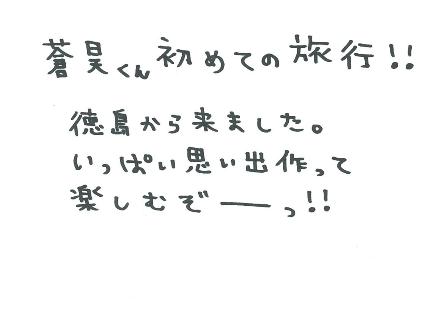 蒼昊くん初めての旅行!!
徳島から来ました。
いっぱい思い出作って
楽しむぞーっ!!